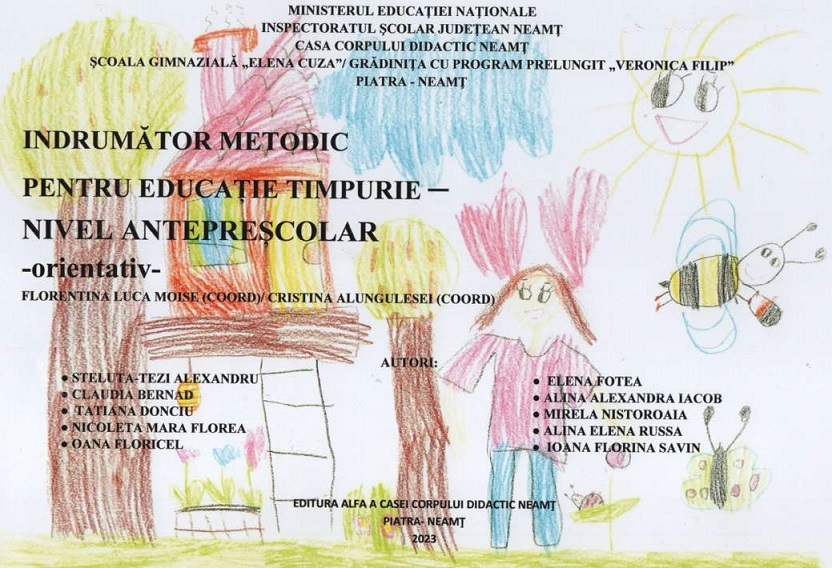 MINISTERUL EDUCAŢIEI NAŢIONALE
INSPECTORATUL ŞCOLAR JUDEŢEAN NEAMŢ
CASA CORPULUI DIDACTIC NEAMŢ
ŞCOALA GIMNAZIALĂ „ELENA CUZA”/ GRĂDINIŢA CU PROGRAM PRELUNGIT „VERONICA FILIP”
PIATRA - NEAMŢ
INDRUMĂTOR METODIC
PENTRU EDUCAŢIE TIMPURIE –
NIVEL ANTEPREŞCOLAR
-orientativ-
FLORENTINA LUCA MOISE (COORD)/ CRISTINA ALUNGULESEI (COORD)
AUTORI:
• STELUTA-TEZI ALEXANDRU
• CLAUDIA BERNAD
• TATIANA DONCIU
• NICOLETA MARA FLOREA
• OANA FLORICEL
• ELENA FOTEA
• ALINA ALEXANDRA IACOB
• MIRELA NISTOROAIA
• ALINA ELENA RUSSA
• IOANA FLORINA SAVIN
EDITURA ALFA A CASEI CORPULUI DIDACTIC NEAMŢ
PIATRA- NEAMŢ
2023